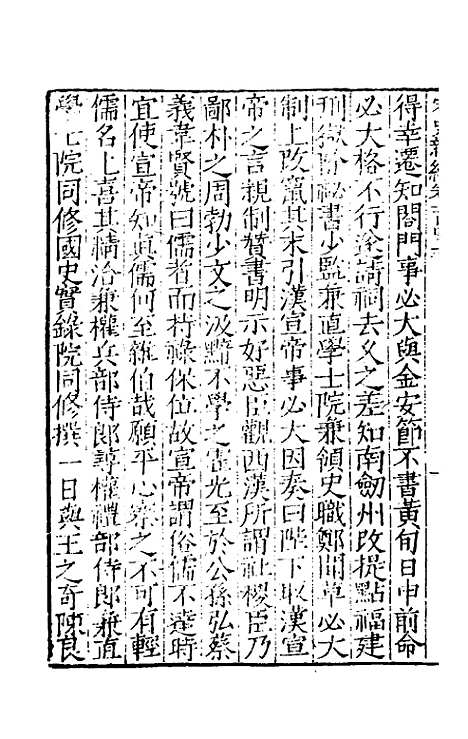 得幸遷知閤門事必大與金安節不書黃旬日申前命
必大格不行遂請祠去久之差知南劒州改提點福建
刑獄除祕書少監兼直學士院兼領史職鄭聞草必大
制上改竄其末引漢宣帝事必大因奏曰陛下取漢宣
帝之言親制賛書明示好惡臣觀西漢所謂社稷臣乃
鄙朴之周勃少文之汲黯不學之霍光至於公孫弘蔡
義韋賢號曰儒者而持祿保位故宣帝謂俗儒不達時
宜使宣帝知眞儒何至雜伯哉願平心察之不可有輕
儒名上喜其精洽兼權兵部侍郎尋權禮部侍郎兼直
學士院同修國史實錄院同修撰一日與王之奇陳良